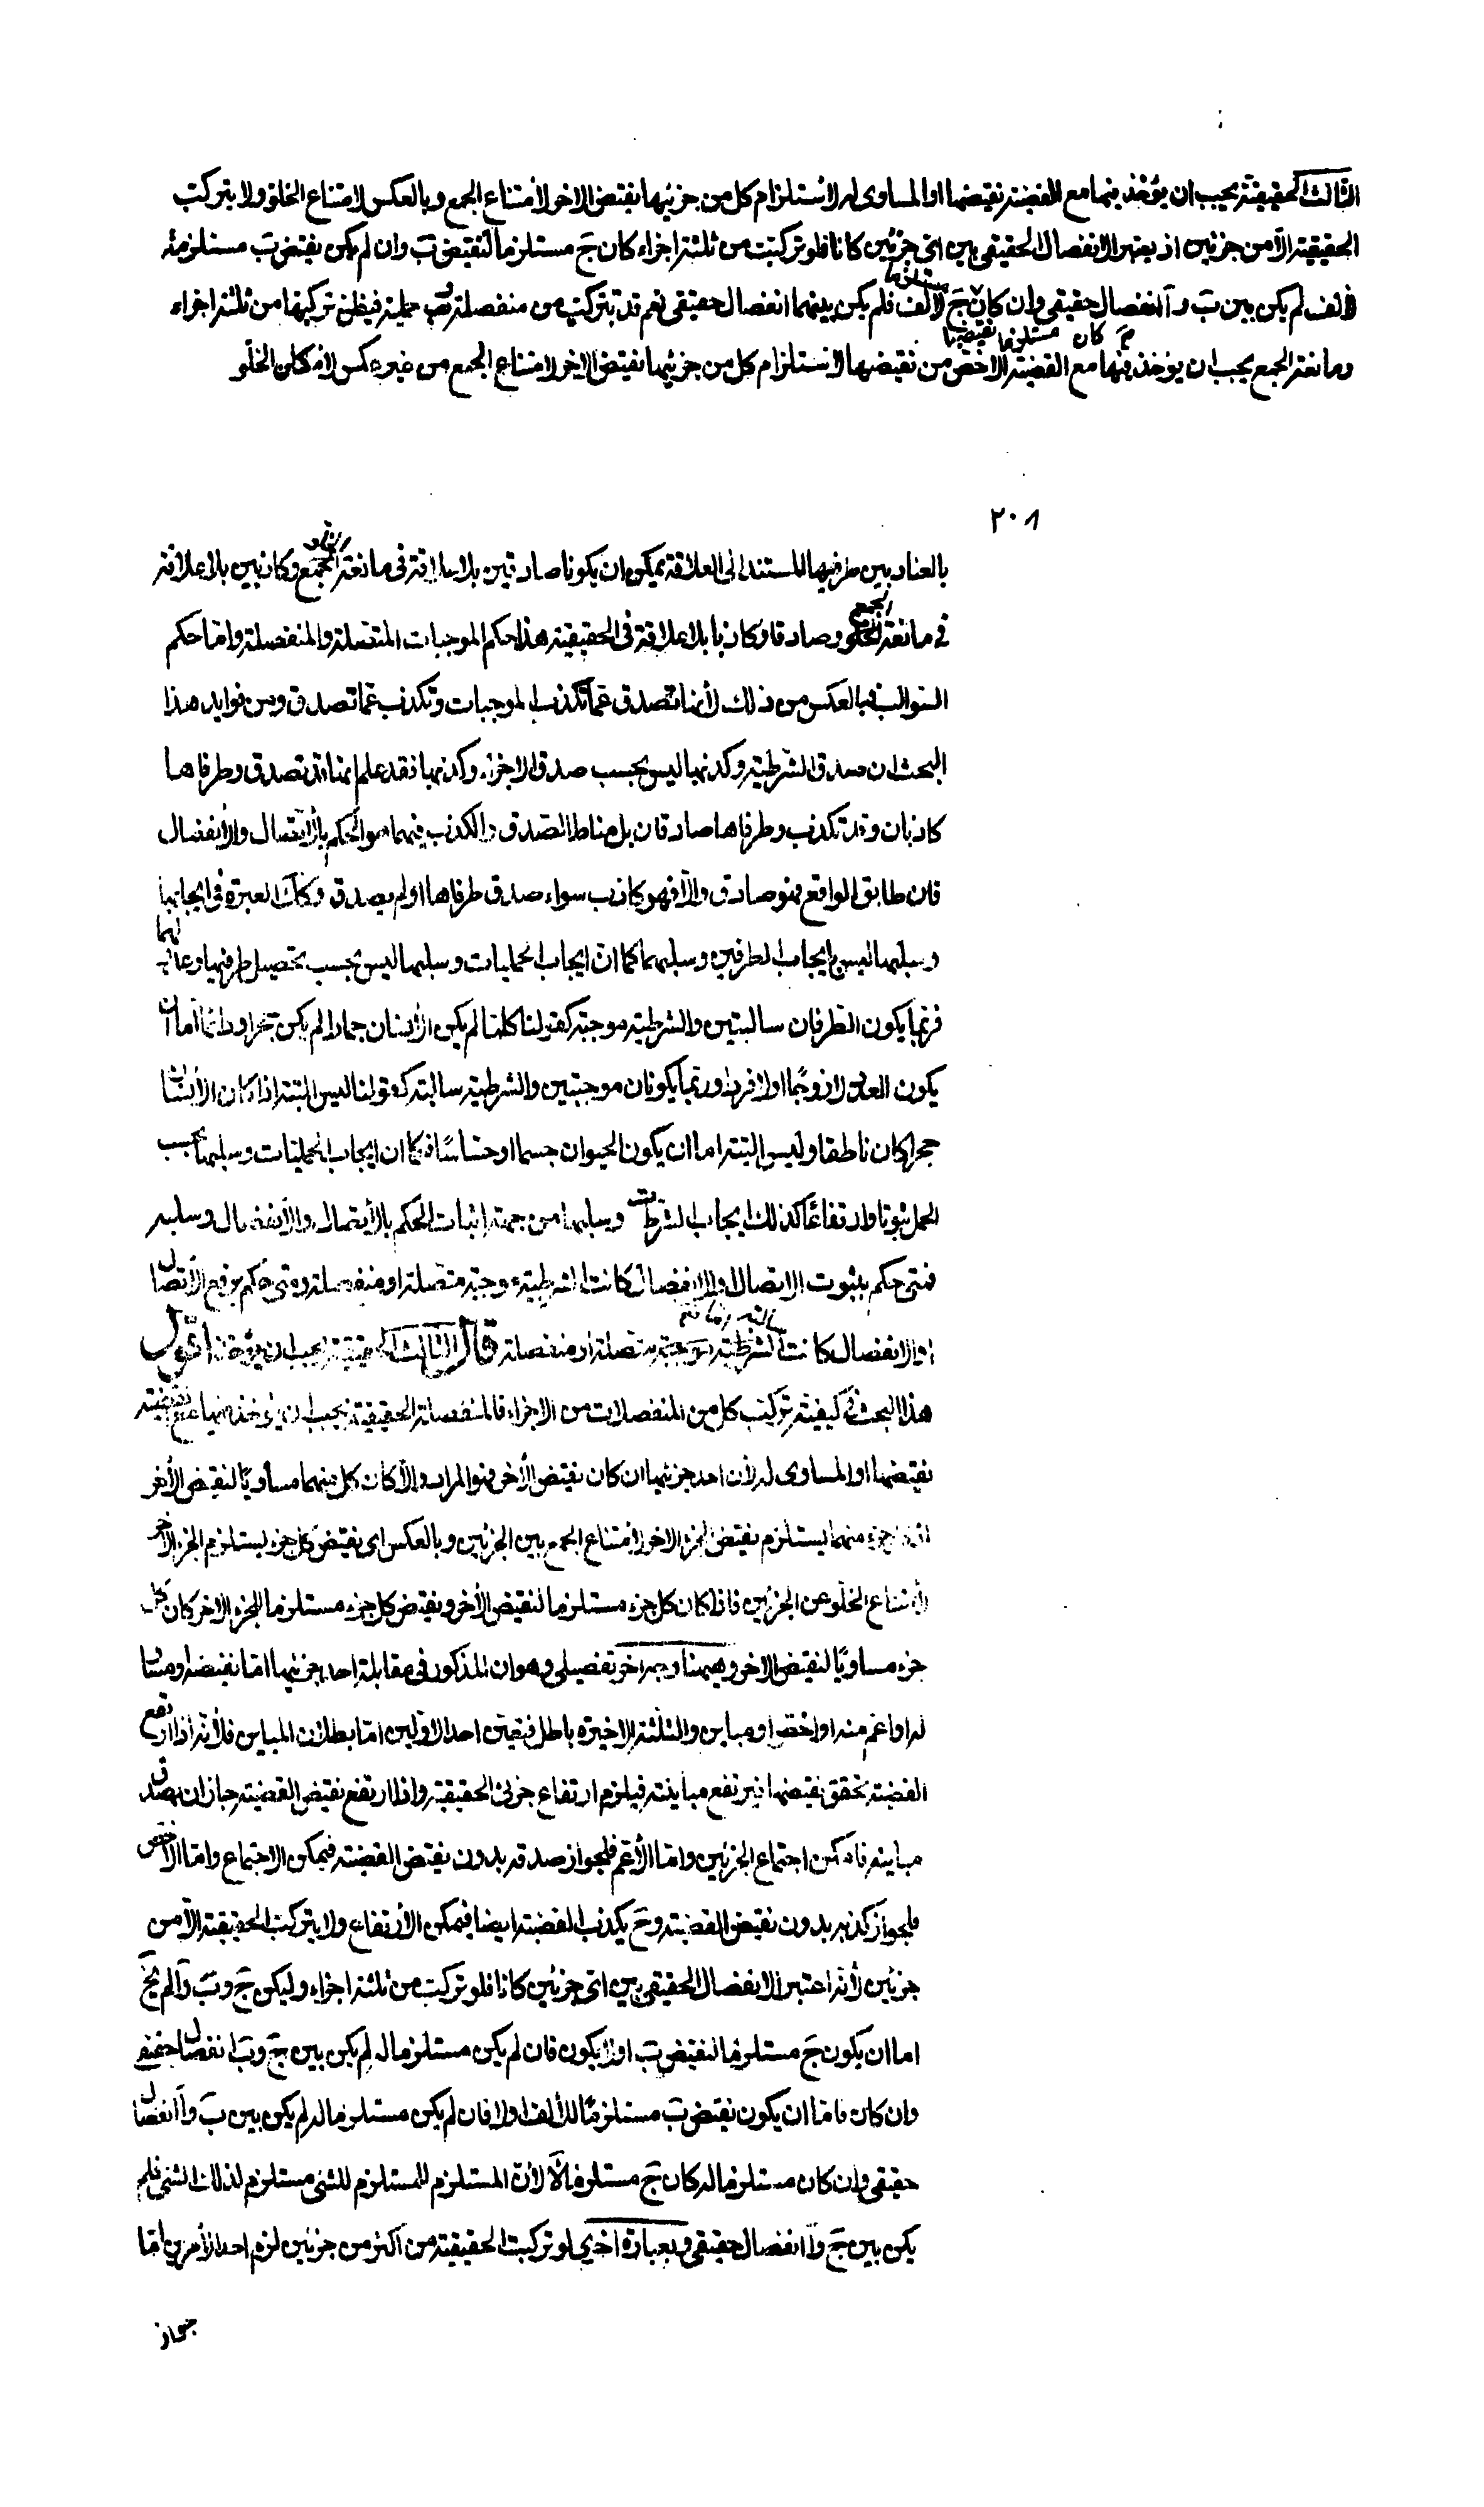 الثالث الحقيقية يجب ان يؤخذ فيها مع القضية نقيضها او المساوى له لاستلزام كل من جزئيها نقيض الاخر لامتناع الجمع وبالعكس لامتناع الخلو ولا يتركب
الحقيقية الا من جزئين اذ يعتبر الانفصال الحقيقى بين اى جزئين كانا فلو تركبت من ثلثة اجزاء كان ج مستلزما لنقيض ب وان لم يكن نقيض ب مستلزمة
لالف لم يكن بين ب وآ انفصال حقيقى وان كان ج مستلزما لالف فلم يكن بينهما انفصال حقيقى نعم قد يتركب من منفصلة و حملية فيظن تركيبها من ثلثة اجزاء
كان مستلزما نقيضها
ومانعة الجمع يجب ان يؤخذ فيها مع القضية الاخص من نقيضها لاستلزام كل من جزئيها نقيض الاخر لامتناع الجمع من غير عكس لامكان الخلو
٢٠٨
بالعناد بين طرفيها المستند الى العلاقة يمكن ان يكونا صادقين بلا علاقة فى مانعة الخلو وكاذبين بلا علاقة
فى مانعة الجمع وصادقا وكاذبا بلا علاقة فى الحقيقية هذا حكم الموجبات المتصلة والمنفصلة واما حكم
السوالب فبالعكس من ذلك لأنها تصدق عما تكذب الموجبات وتكذب عما تصدق ومن فوايد هذا
البحث ان صدق الشرطية وكذبها ليس بحسب صدق الاجزاء وكذبها فقد علم انها قد تصدق وطرفاها
كاذبان وقد تكذب وطرفاها صادقان بل مناط الصدق والكذب فيهما هو الحكم بالأتصال والأنفصال
فان طابق الواقع فهو صادق والا فهو كاذب سواء صدق طرفاها او لم يصدق وكذلك العبرة فى ايجابها
وسلبهما ليس بايجاب الطرفين وسلبهما كما ان ايجاب الحمليات وسلبها ليس بحسب تحصيل طرفيها وعدولهما
فربما يكون الطرفان سالبتين والشرطية موجبة كقولنا كلما لم يكن الأنسان جمادا لم يكن حجرا ودائما اما ان
يكون العدد لا زوجا او لا فردا وربما يكونان موجبتين والشرطية سالبة كقولنا ليس البتة اذا كان الأنسان
حجرا كان ناطقا وليس البتة اما ان يكون الحيوان جسما او حساسا فكما ان ايجاب الحمليات وسلبها بحسب
الحمل ثبوتا وارتفاعا كذلك ايجاب الشرطيات وسلبها من جهة اثبات الحكم بالأتصال والأنفصال وسلبه
فمتى حكم بثبوت الاتصال والانفصال كانت الشرطية موجبة متصلة او منفصلة ومتى حكم برفع الأتصال
او الانفصال كانت الشرطية سالبة متصلة او منفصلة قال الثالث الحقيقية يجب ان يؤخذ اقول
هذا البحث فى كيفية تركب كل من المنفصلات من الاجزاء فالمنفصلة الحقيقية يجب ان يؤخذ فيها مع القضية
نقيضها او المساوى له لأن احد جزئيها ان كان نقيض الأخر فهو المراد والا كان كل منهما مساويا لنقيض الأخر
اذ كل جزء منهما يستلزم نقيض الجزء الاخر لأمتناع الجمع بين الجزئين وبالعكس اى نقيض كل جزء يستلزم الجزء الاخر
لأمتناع الخلو عن الجزئين فاذا كان كل جزء مستلزما لنقيض الأخر ونقيض كل جزء مستلزما للجزء الاخر كان كل
جزء مساويا لنقيض الاخر وههنا وجه اخر تفصيلى وهو ان المذكور فى مقابلة احد جزئيها اما نقيضه او مساو
له او اعم منه او اخص او مباين والثلثة الاخيرة باطل فتعين احد الاولين اما بطلان المباين فلأنه اذا ارتفع
القضية تحقق نقيضها فيرتفع مباينته فيلزم ارتفاع جزئى الحقيقية واذا ارتفع نقيض القضية جاز ان يصدق
مباينه فامكن اجتماع الجزئين واما الأعم فلجواز صدقه بدون نقيض القضية فيمكن الاجتماع واما الأخص
فلجواز كذبه بدون نقيض القضية وح يكذب القضية ايضا فيمكن الأرتفاع ولا يتركب الحقيقية الا من
جزئين لأنه اعتبر الانفصال الحقيقى بين اى جزئين كانا فلو تركبت من ثلثة اجزاء وليكن ج وب وآ لم يخ
اما ان يكون ج مستلزما لنقيض ب او لا يكون فان لم يكن مستلزما له لم يكن بين ج وب انفصال حقيقى
وان كان فاما ان يكون نقيض ب مستلزما للألف او لا فان لم يكن مستلزما له لم يكن بين ب وآ انفصال
حقيقى وان كان مستلزما له كان ج مستلزما لآ لأن المستلزم للمستلزم للشئ مستلزم لذلك الشئ فلم
يكن بين ج وآ انفصال حقيقى وبعبارة اخرى لو تركبت الحقيقية من اكثر من جزئين لزم احد الأمرين اما
جواز